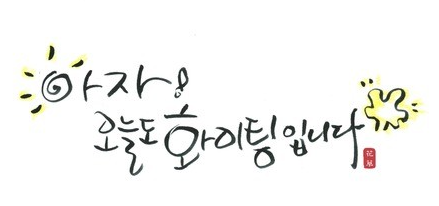 아자!
오늘도 화이팅입니다